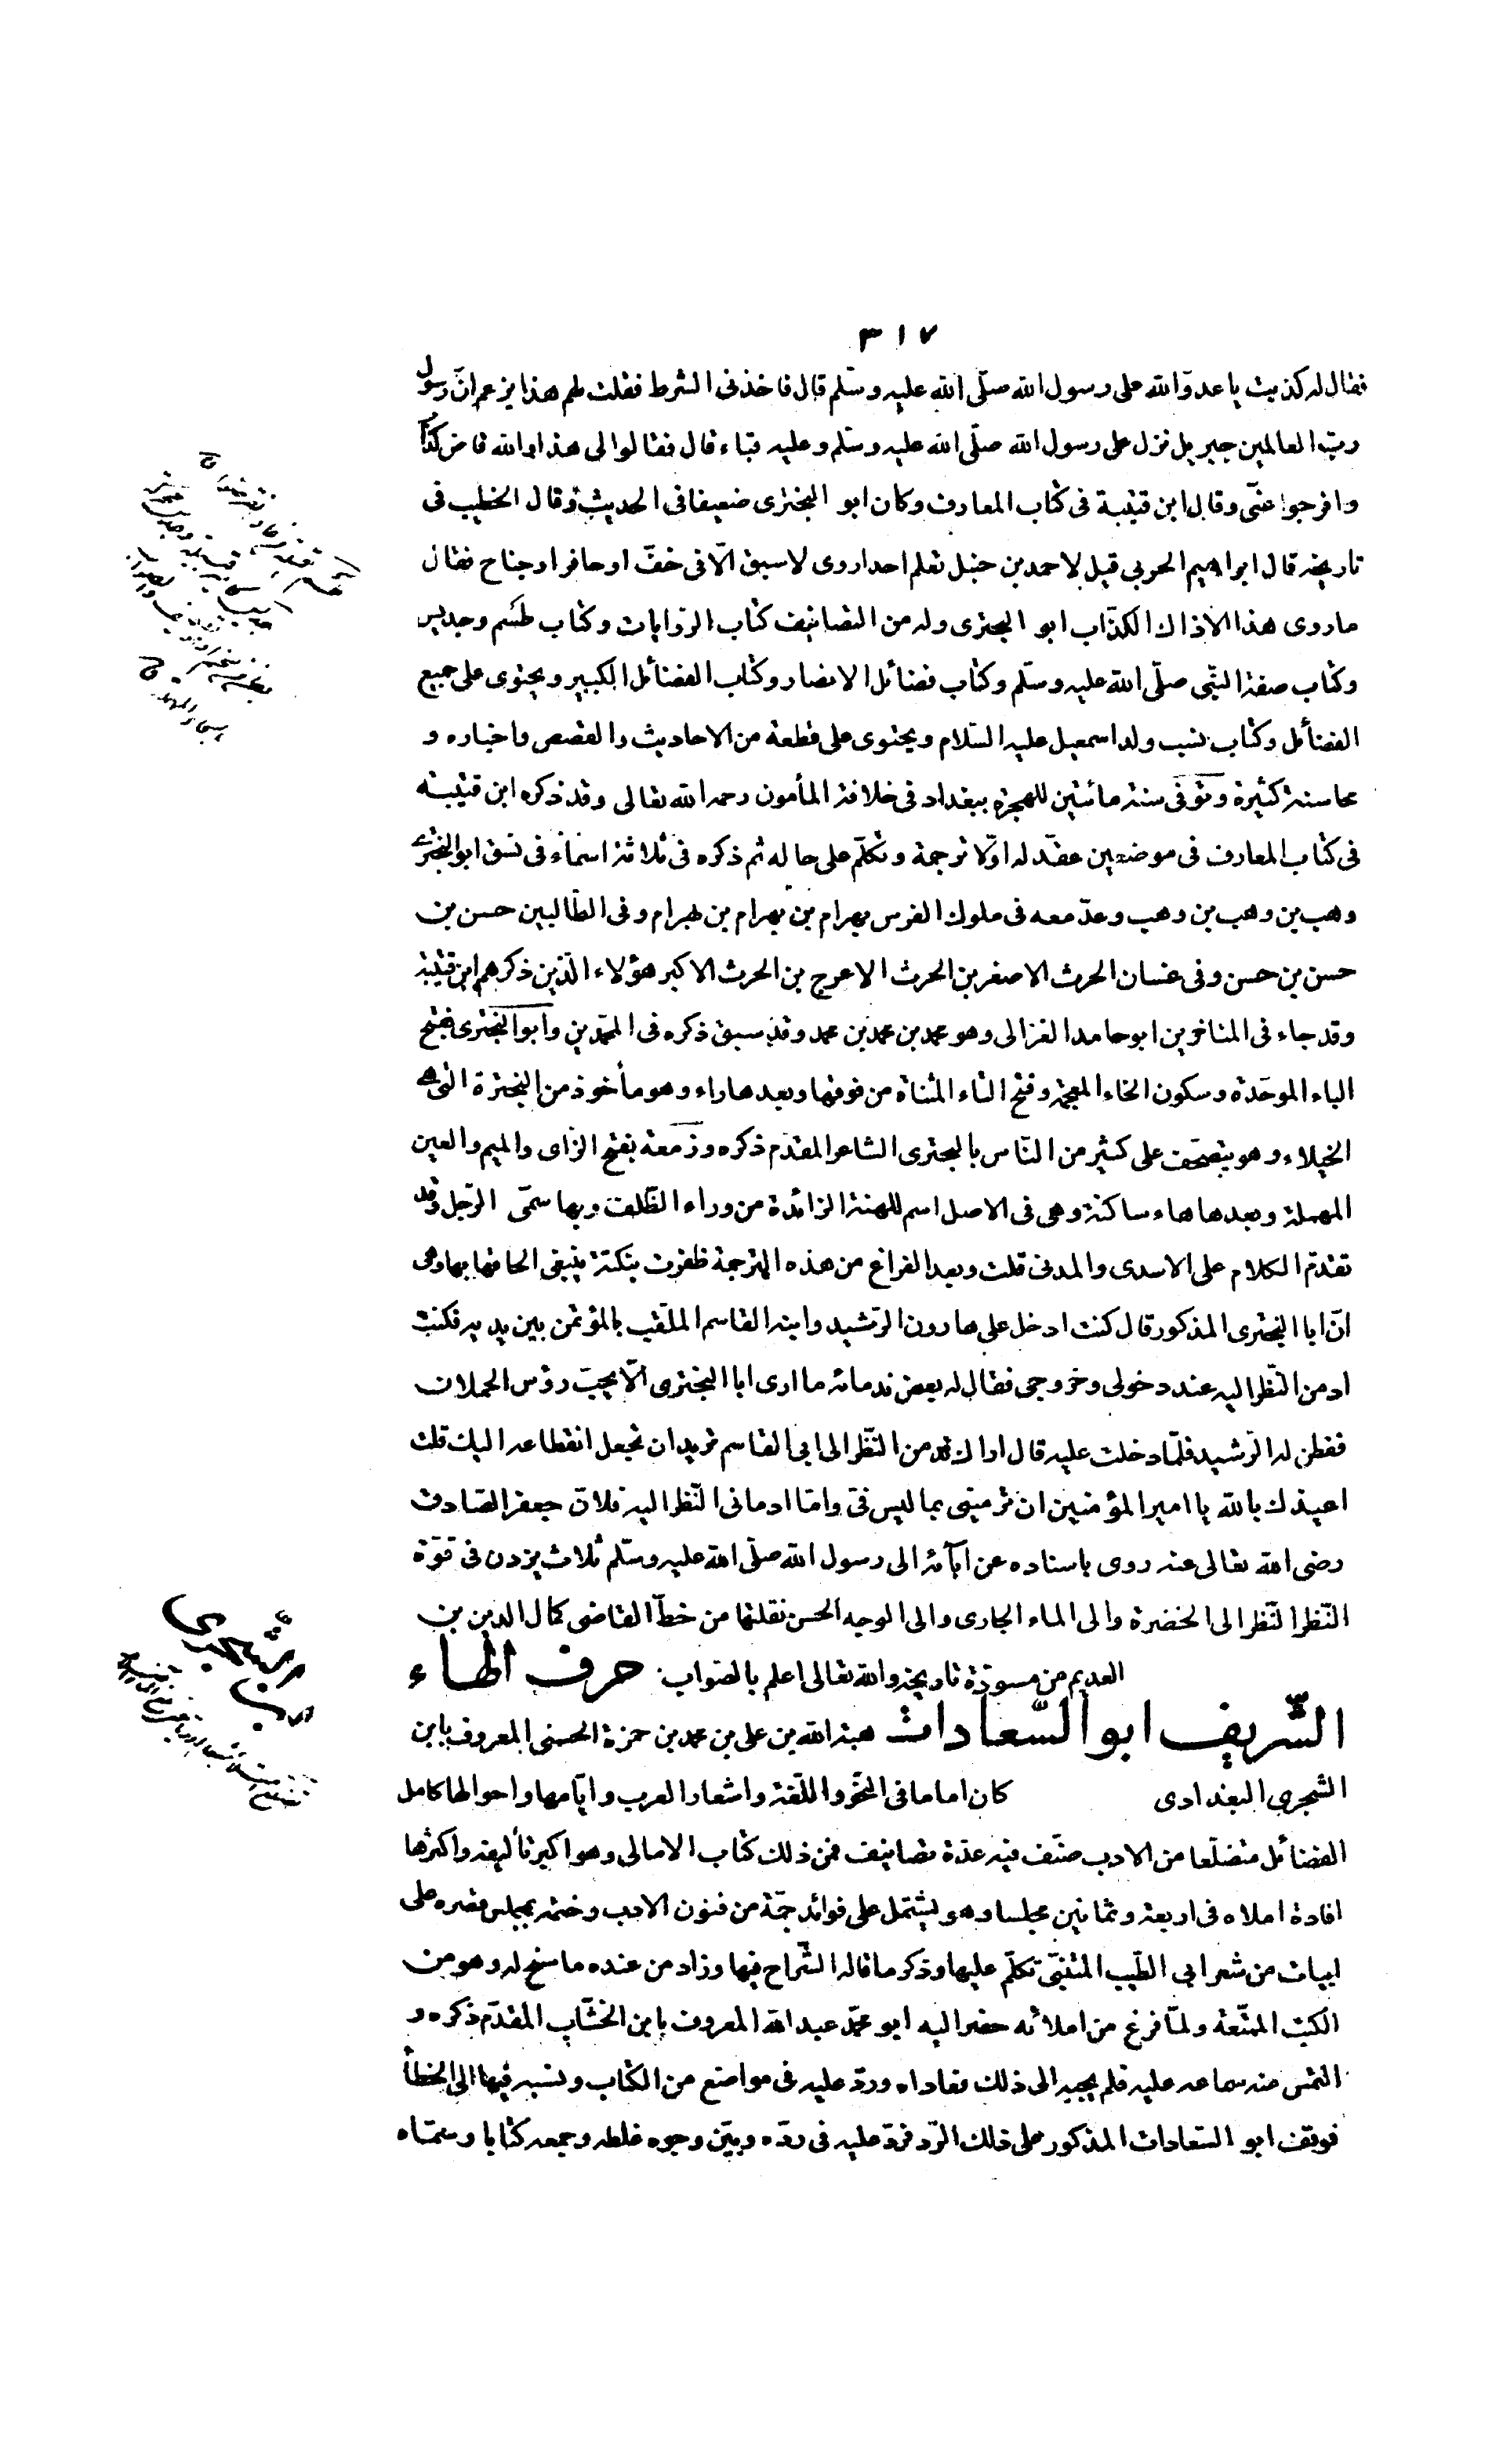 ٣١٧
فقال له كذبت يا عدوّ الله على رسول الله صلّى الله عليه وسلّم قال فاخذنى الشرط فقلت لهم هذا يزعم انّ رسول
ربّ العالمين جبريل نزل على رسول الله صلّى الله عليه وسلّم وعليه قباء قال فقالوا لى هذا والله قاض كذّاب
وافرجوا عنّى وقال ابن قتيبة فى كتاب المعارف وكان ابو البخترى ضعيفا فى الحديث وقال الخطيب فى
تاريخه قال ابراهيم الحربى قيل لاحمد بن حنبل تعلم احدا روى لا سبق الّا فى خفّ او حافر او جناح فقال
ما روى هذا الا ذاك الكذّاب ابو البخترى وله من التصانيف كتاب الروايات وكتاب طسم وجديس
وكتاب صفة النبّى صلّى الله عليه وسلّم وكتاب فضائل الانصار وكتاب الفضائل الكبير ويحتوى على جميع
الفضائل وكتاب نسب ولد اسمعيل عليه السّلام ويحتوى على قطعة من الاحاديث والقصص واخباره و
محاسنه كثيرة وتوفى سنة مائتين للهجرة ببغداد فى خلافة المأمون رحمه الله تعالى وقد ذكره ابن قتيبة
فى كتاب المعارف فى موضعين عقد له اوّلا ترجمة وتكلّم على حاله ثم ذكره فى ثلاثة اسماء فى نسق ابو البخترى
وهب بن وهب بن وهب وعدّ معه فى ملوك الفرس بهرام بن بهرام بن بهرام وفى الطالبيين حسن بن
حسن بن حسن وفى غسان الحرث الاصغر بن الحرث الاعرج بن الحرث الاكبر هؤلاء الّذين ذكرهم ابن قتيبة
وقد جاء فى المتاخرين ابو حامد الغزالى وهو محمد بن محمد بن محمد وقد سبق ذكره فى المحمّدين وابو البخترى بفتح
الباء الموحّدة وسكون الخاء المعجمة وفتح التاء المثناة من فوقها وبعدها راء وهو مأخوذ من البخترة التى هى
الخيلاء وهو يتصحّف على كثير من النّاس بالبحترى الشاعر المقدّم ذكره وزمعة بفتح الزاى والميم والعين
المهملة وبعدها هاء ساكنة وهى فى الاصل اسم للهنة الزائدة من وراء الظّلف وبها سمّى الرّجل وقد
تقدّم الكلام على الاسدى والمدنى قلت وبعد الفراغ من هذه الترجمة ظفرت بنكتة ينبغى الحاقها بها وهى
انّ ابا البخترى المذكور قال كنت ادخل على هارون الرّشيد وابنه القاسم الملقب بالمؤتمن بين يديه فكنت
ادمن النّظر اليه عند دخولى وخروجى فقال له بعض ندمائه ما ارى ابا البخترى الّا يحبّ رؤس الحملان
ففطن له الرّشيد فلمّا دخلت عليه قال اراك تدمن النّظر الى ابى القاسم تريد ان تجعل انقطاعه اليك قلت
اعيذك بالله يا امير المؤمنين ان ترمينى بما ليس فىّ وامّا ادمانى النّظر اليه فلانّ جعفر الصّادق
رضى الله تعالى عنه روى باسناده عن آبائه الى رسول الله صلّى الله عليه وسلّم ثلاث يزدن فى قوّة
النّظر النّظر الى الخضرة والى الماء الجارى والى الوجه الحسن نقلتها من خطّ القاضى كمال الدين بن
العديم من مسودّة تاريخه والله تعالى اعلم بالصّواب حرف الهاء
الشّريف ابو السّعادات هبة الله بن على بن محمد بن حمزة الحسنى المعروف بابن
الشجرى البغدادى كان اماما فى النّحو واللّغة واشعار العرب وايّامها واحوالها كامل
الفضائل متضلّعا من الادب صنّف فيه عدّة تصانيف فمن ذلك كتاب الامالى وهو اكبر تأليفه واكثرها
افادة املاه فى اربعة وثمانين مجلسا وهو يشتمل على فوائد جمّة من فنون الادب وختمه بمجلس قصره على
ابيات من شعر ابى الطّيب المتنبّى تكلّم عليها وذكر ما قاله الشّراح فيها وزاد من عنده ما سنح له وهو من
الكتب الممتّعة ولمّا فرغ من املائه حضر اليه ابو محمّد عبد الله المعروف بابن الخشّاب المقدّم ذكره و
التمس منه سماعه عليه فلم يجبه الى ذلك فعاداه وردّ عليه فى مواضع من الكتاب ونسبه فيها الى الخطأ
فوقف ابو السّعادات المذكور على ذلك الرّد فردّ عليه فى ردّه وبيّن وجوه غلطه وجمعه كتابا وسمّاه
ابن الشّجرى